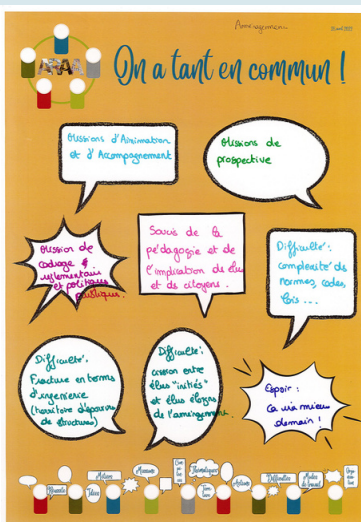 Aménagement
On a tant en commun !
Missions d'Animation
et d'Accompagnement
Missions de
prospective
Mission de
cadrage
réglementaire
et politique
publique.
Soucis de la
pédagogie et de
l'implication des élus
et des citoyens.
Difficulté :
complexité des
normes, codes,
lois ...
Difficulté :
Fracture en terme
d'ingénierie
(territoire dépourvu
de structures)
Difficulté :
scission entre
élus "initiés"
et élus éloignés
de l'aménagement.
Espoir :
Ca ira mieux
demain !
Réussite
Idées
Métiers
Missions
Thématiques
Actions
Difficultés
Modes
de travail